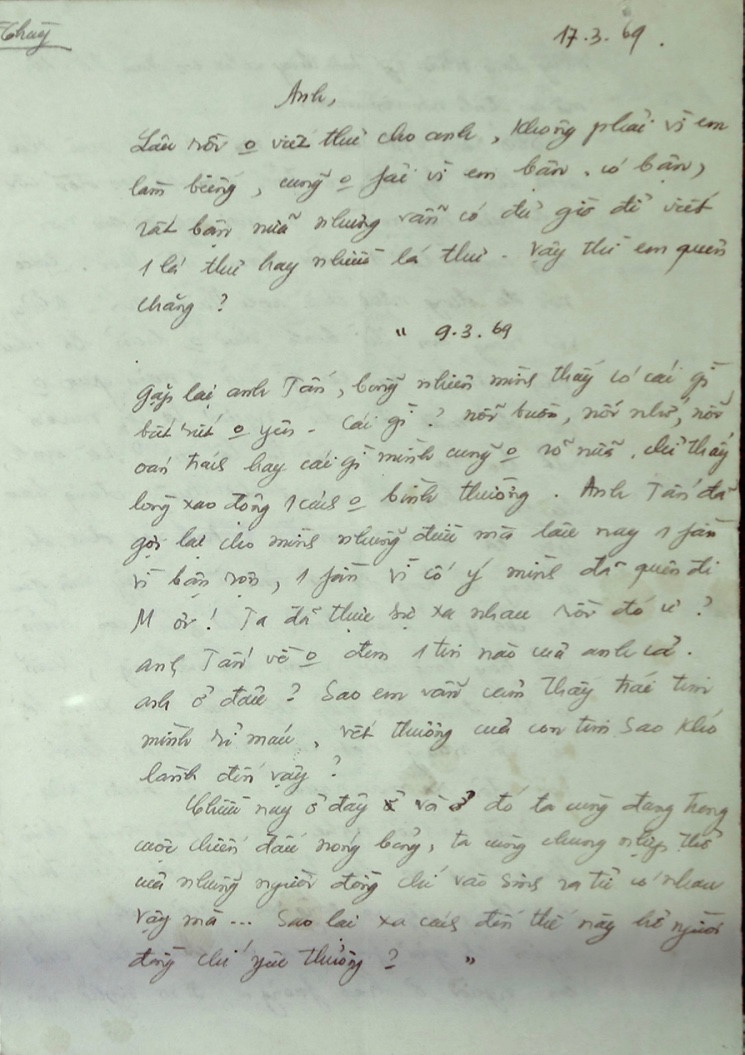 Thuỳ
17.3.69.
Anh,
Lâu rồi o viết thư cho anh, không phải vì em
làm biếng, cũng o fải vì em bận. Có bận,
rất bận nữa nhưng vẫn có đủ giờ để viết
1 lá thư hay nhiều lá thư. Vậy thì em quên
chăng?
" 9.3.69
Gặp lại anh Tấn, bỗng nhiên mình thấy có cái gì
bứt rứt o yên. Cái gì? nỗi buồn, nỗi nhớ, nỗi
oán trách hay cái gì mình cũng o rõ nữa, chỉ thấy
lòng xao động 1 cách o bình thường. Anh Tấn đã
gợi lại cho mình những điều mà lâu nay 1 fần
vì bận rộn, 1 fần vì cố ý mình đã quên đi
M ơi! Ta đã thực sự xa nhau rồi đó ư?
anh Tấn về o đem 1 tin nào của anh cả.
anh ở đâu? Sao em vẫn cảm thấy trái tim
mình rỉ máu, vết thương của con tim sao khó
lành đến vậy?
Chiều nay ở đây và ở đó ta cùng đang trong
cuộc chiến đấu nóng bỏng, ta cùng chung nhịp thở
của những người đồng chí vào sinh ra tử có nhau
vậy mà ... Sao lại xa cách đến thế này hở người
đồng chí yêu thương? "